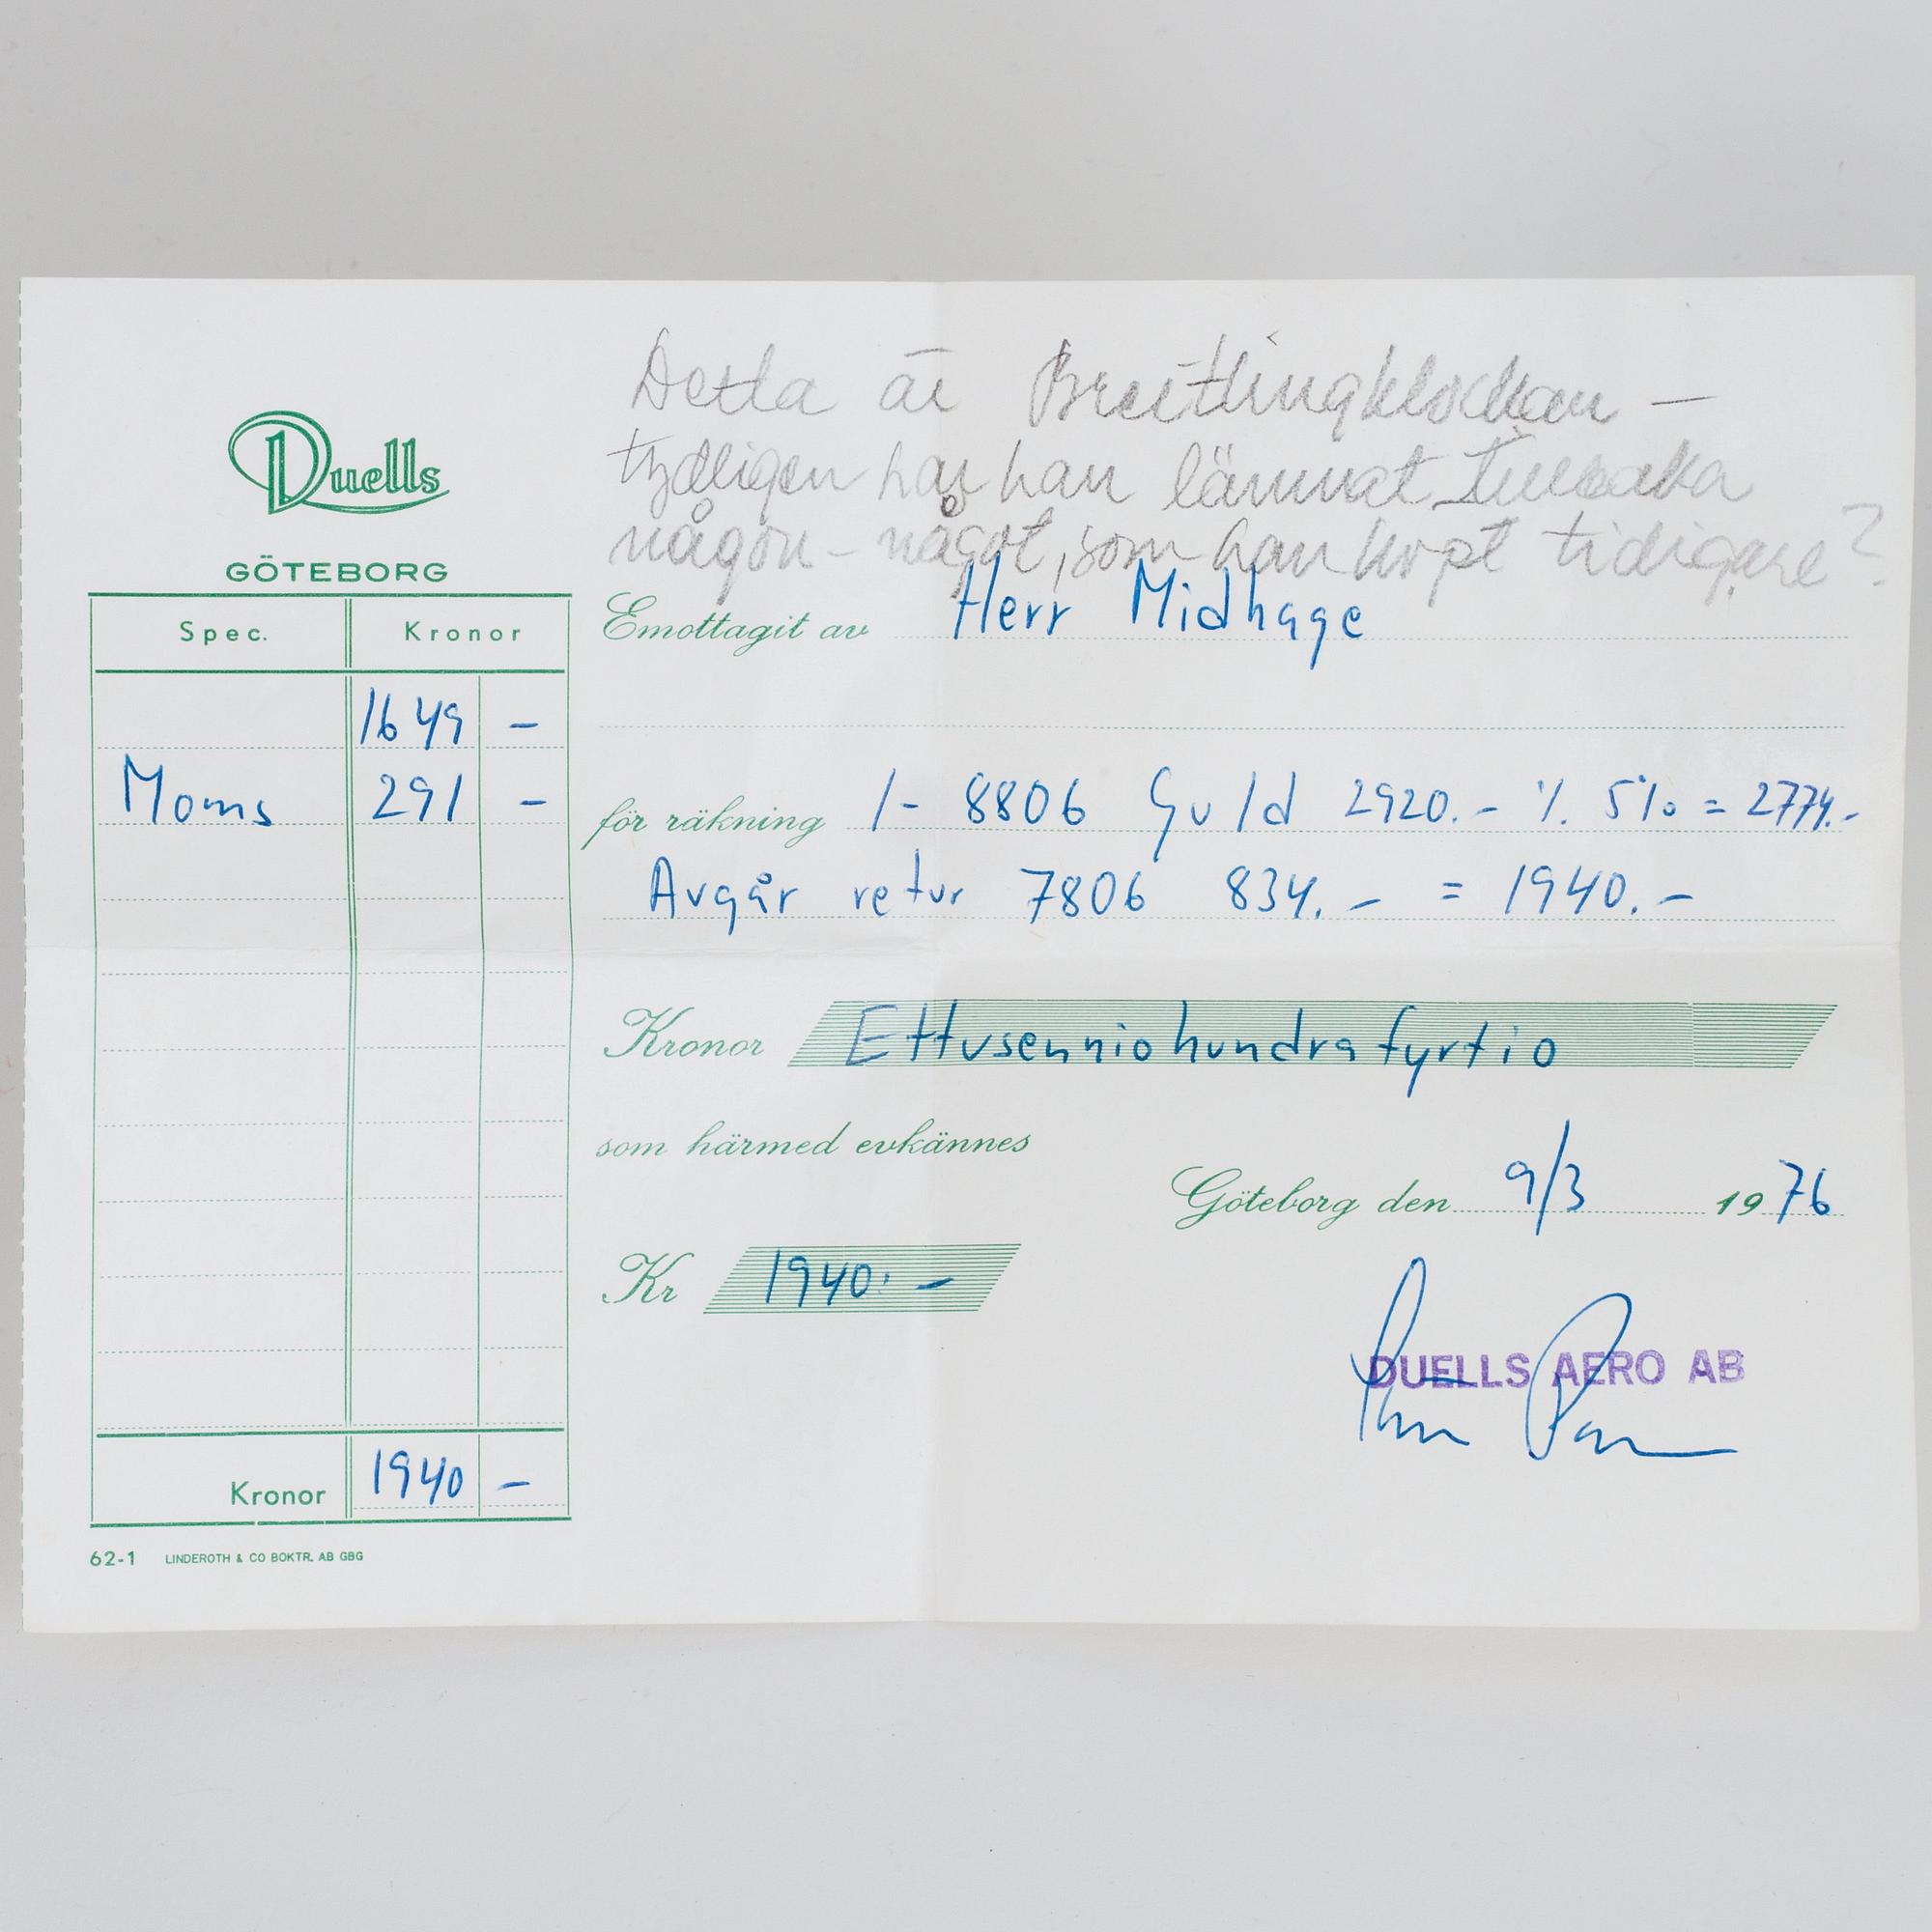 Detta är Breitlingklockan –
tydligen har han lämnat tillbaka
någon – något, som han köpt tidigare?
Duells
GÖTEBORG
Spec. Kronor
1649 –
Moms 291 –
Kronor 1940 –
62-1 LINDEROTH & CO BOKTR. AB GBG
Emottagit av Herr Midhage
för räkning 1- 8806 Guld 2920.- ٪ 5% = 2774.-
Avgår retur 7806 834.- = 1940.-
Kronor Ettusenniohundrafyrtio
som härmed erkännes
Göteborg den 9/3 1976
Kr 1940:-
DUELLS AERO AB